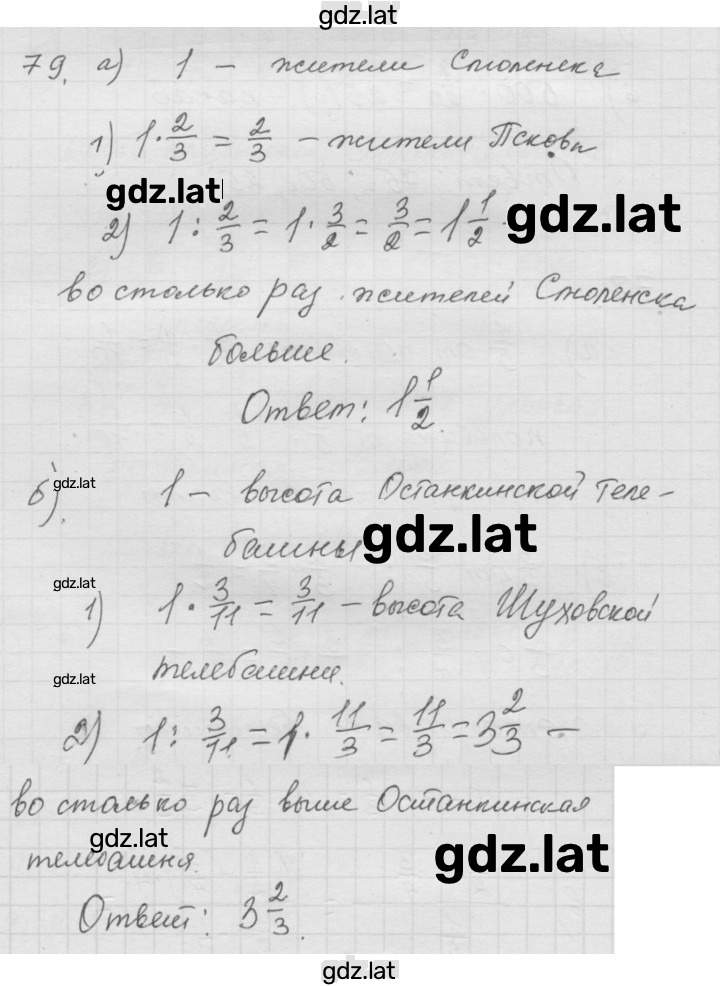 gdz.lat
79. а) 1 – жители Смоленска
1) 1 · 2/3 = 2/3 – жители Пскова
gdz.lat
gdz.lat
2) 1 : 2/3 = 1 · 3/2 = 3/2 = 1 1/2
во столько раз жителей Смоленска
больше.
Ответ: 1 1/2.
gdz.lat
б). 1 – высота Останкинской теле-
башни
gdz.lat
gdz.lat
1) 1 · 3/11 = 3/11 – высота Шуховской
gdz.lat
телебашни.
2) 1 : 3/11 = 1 · 11/3 = 11/3 = 3 2/3 –
во столько раз выше Останкинская
gdz.lat
телебашня.
gdz.lat
Ответ: 3 2/3.
gdz.lat